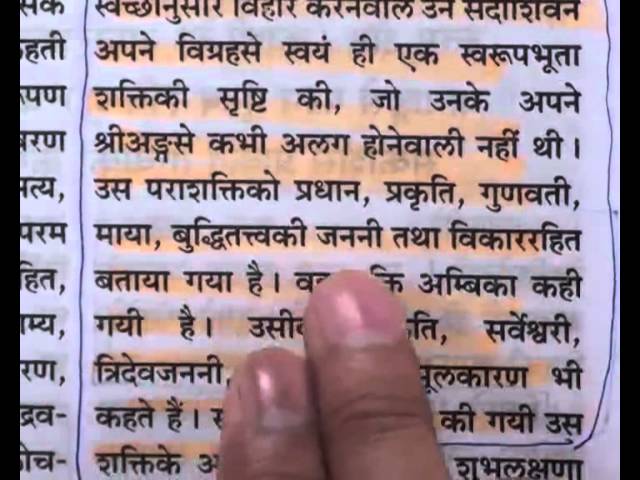 स्वच्छानुसार विहार करनेवाले उन सदाशिवने
हती अपने विग्रहसे स्वयं ही एक स्वरूपभूता
पण शक्तिकी सृष्टि की, जो उनके अपने
रण श्रीअङ्गसे कभी अलग होनेवाली नहीं थी ।
त्य, उस पराशक्तिको प्रधान, प्रकृति, गुणवती,
परम माया, बुद्धितत्त्वकी जननी तथा विकाररहित
हित, बताया गया है । अम्बिका कही
म्य, गयी है । सर्वेश्वरी,
रण, त्रिदेवजननी, मूलकारण भी
द्रव- कहते हैं । की गयी उस
शक्तिके शुभलक्षणा